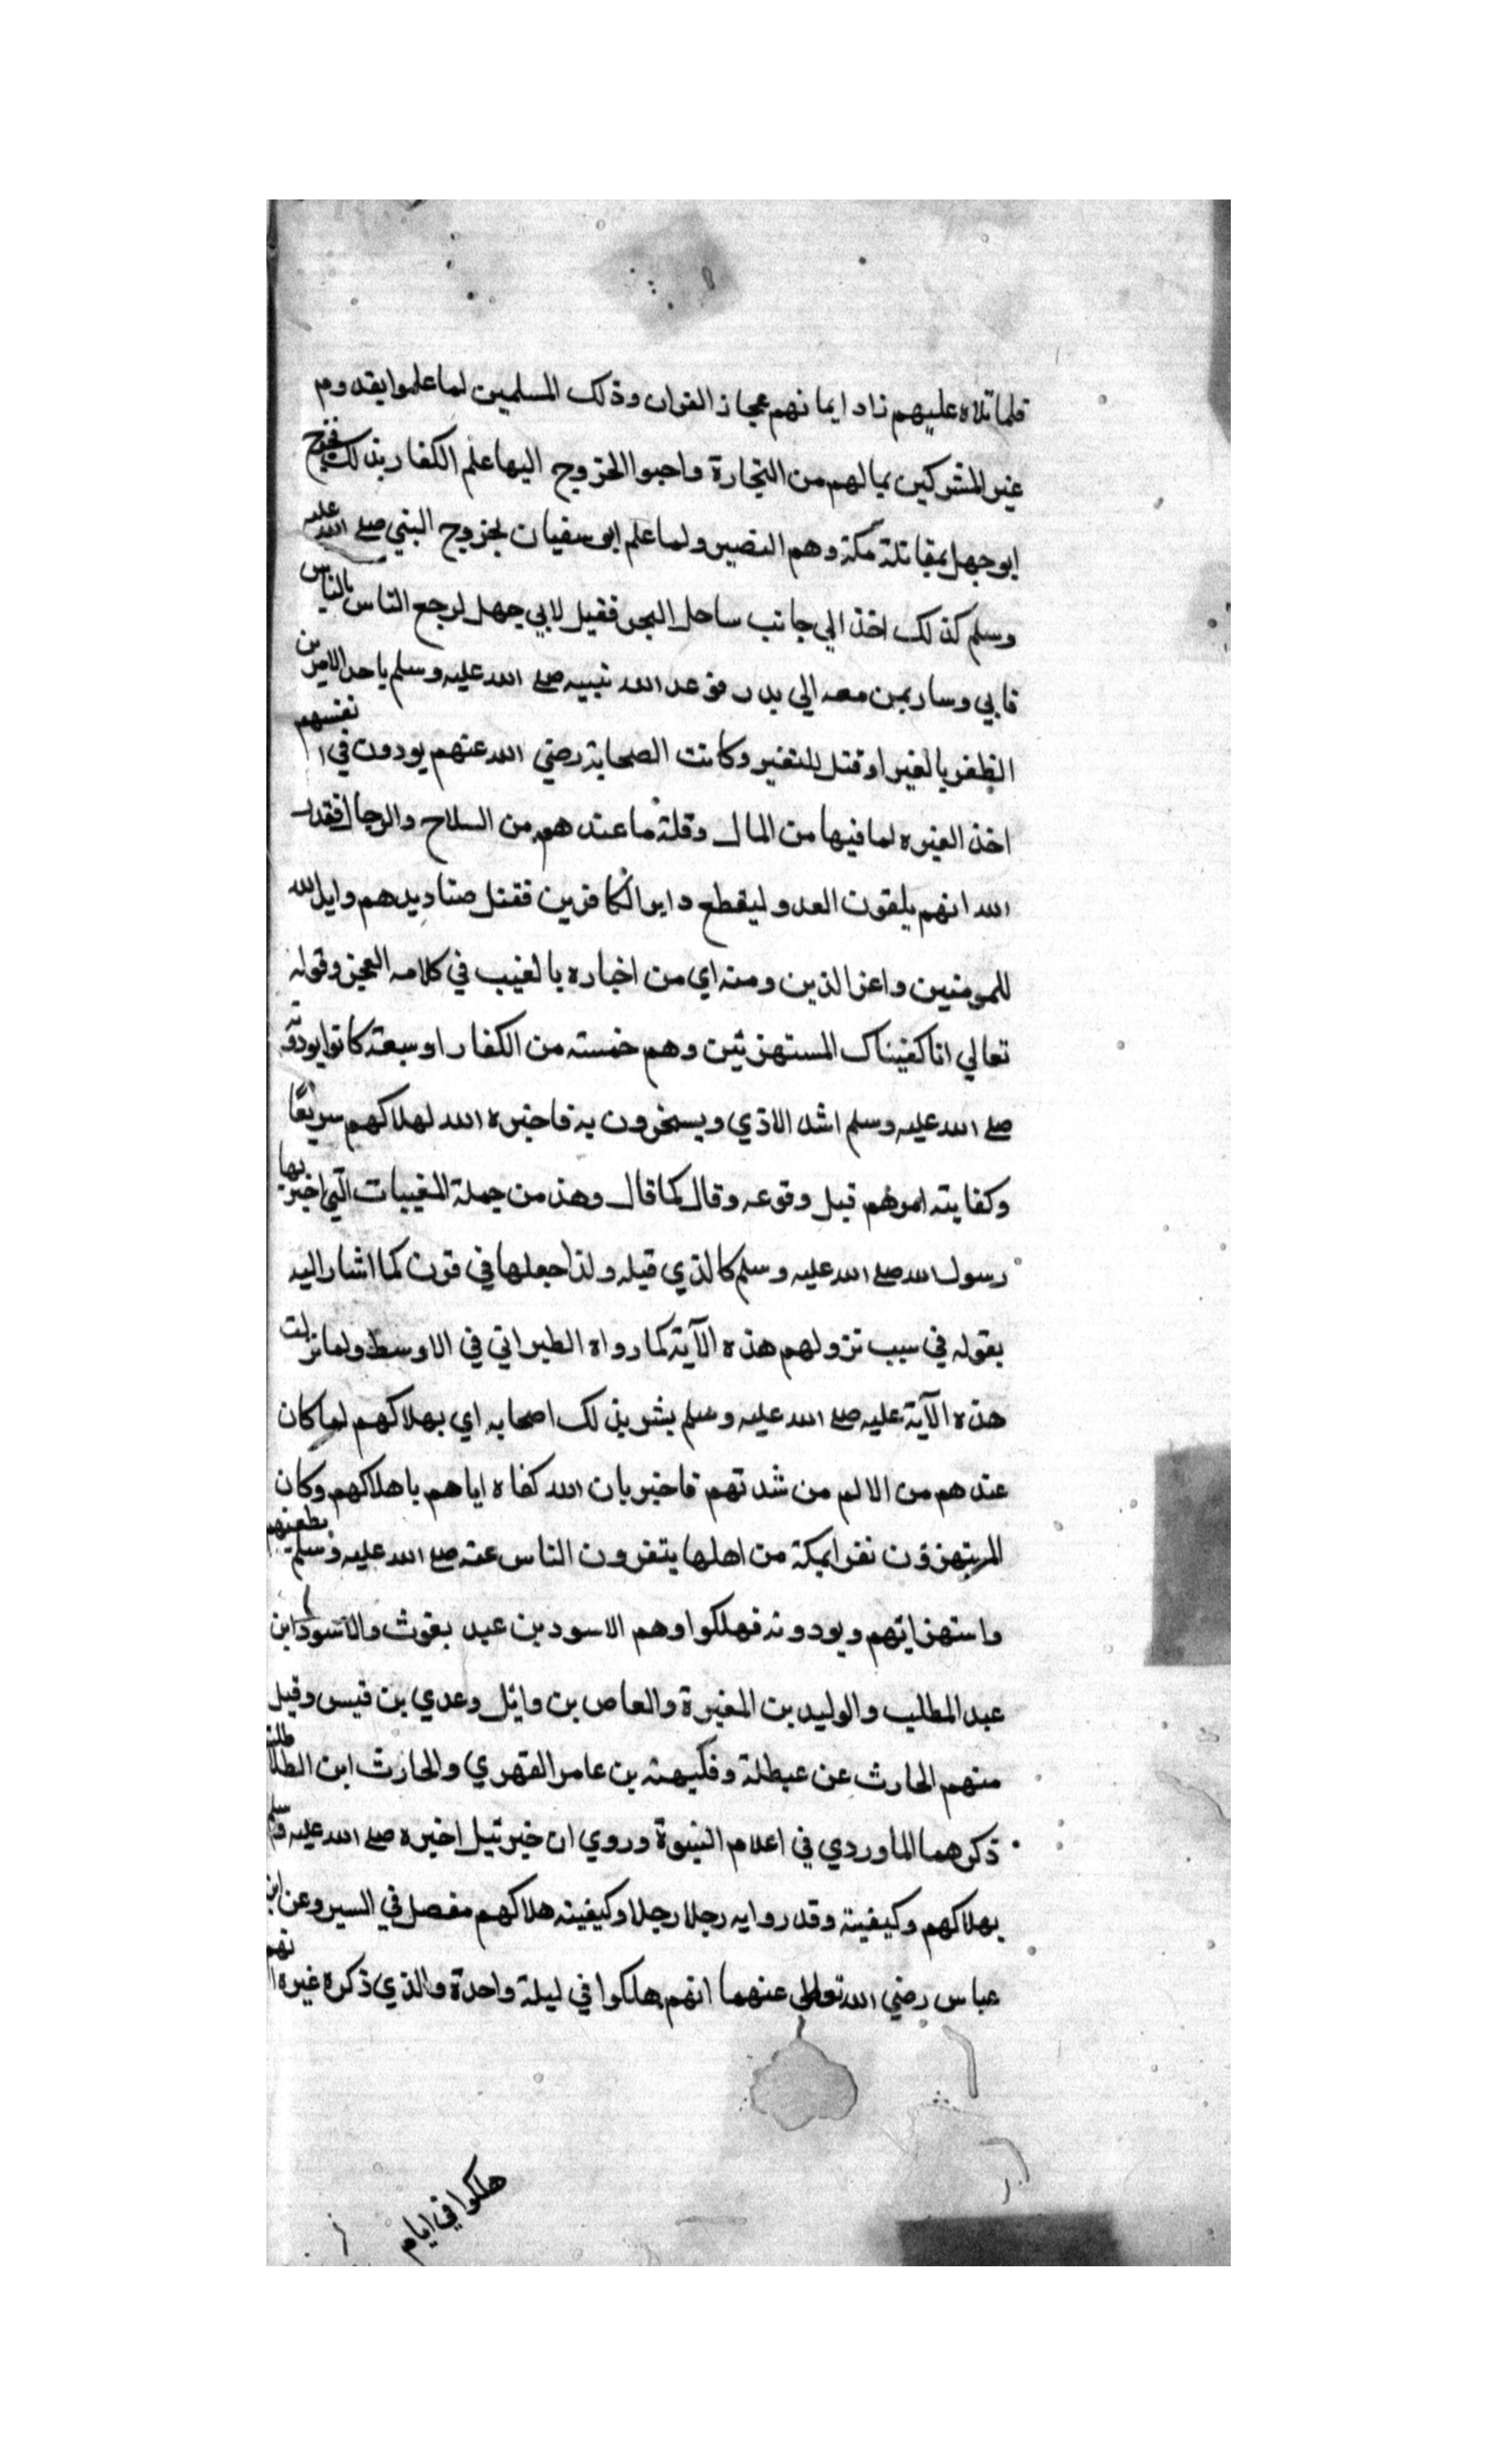 فلما تلاه عليهم زاد ايمانهم عجاز القران وذلك المسلمين لما علموا بقدوم
عير المشركين بمالهم من التجارة واحبوا الخروج اليها علم الكفار بذلك فخرج
ابو جهل بمقاتلة مكة وهم النصير ولما علم ابو سفيان بخروج النبي صلى الله عليه
وسلم كذلك اخذ الي جانب ساحل البحر فقيل لابي جهل لرجع الناس بالناس
فابي وسار بمن معه الي بدر فوعد الله نبيه صلى الله عليه وسلم باحد الامرين
الظفر بالعير او قتل للنفير وكانت الصحابة رضي الله عنهم يودون في انفسهم
اخذ العيره لما فيها من المال وقلة ما عندهم من السلاح والرجال فقدر
الله انهم يلقون العدو ليقطع دابر الكافرين فقتل صناديدهم وايد الله
للمومنين واعز الدين ومنه اي من اخباره بالغيب في كلامه المعجز وقوله
تعالي انا كفيناك المستهزئين وهم خمسته من الكفار او سبعة كانوا يودونه
صلى الله عليه وسلم اشد الاذي ويسخرون به فاخبره الله لهلاكهم سريعًا
وكفايته امورهم قبل وقوعه وقال كما قال وهذ من جملة المغيبات التي اخبر بها
رسول الله صلى الله عليه وسلم كالذي قبله ولذا جعلها في قرن كما اشار اليه
بقوله في سبب نزولهم هذه الآية كما رواه الطبراني في الاوسط ولما نزلت
هذه الآية عليه صلى الله عليه وسلم بشر بذلك اصحابه اي بهلاكهم لما كان
عندهم من الالم من شدتهم فاخبر بان الله كفاه اياهم باهلاكهم وكان
المستهزؤن نفرا بمكة من اهلها يتفرون الناس عنه صلى الله عليه وسلم بطعنهم
واستهزايهم ويودونه فهلكوا وهم الاسود بن عبد يغوث والاسود ابن
عبد المطلب والوليد بن المغيرة والعاص بن وائل وعدي بن قيس وقيل
منهم الحارث عن عيطلة وفكيهة بن عامر الفهري والحارث ابن الطلاطلة
ذكرهما الماوردي في اعلام النبوة وروي ان جبرئيل اخبره صلى الله عليه وسلم
بهلاكهم وكيفيته وقد روايه رجلا رجلا وكيفيته هلاكهم مفصل في السير وعن ابن
عباس رضي الله تعالي عنهما انهم هلكوا في ليلة واحدة والذي ذكره غيره انهم
هلكوا في ايام